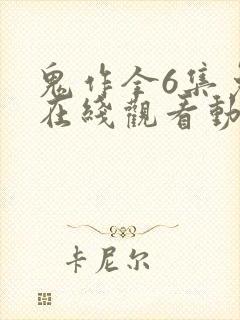 鬼作全6集
在綫觀看動
卡尼尔